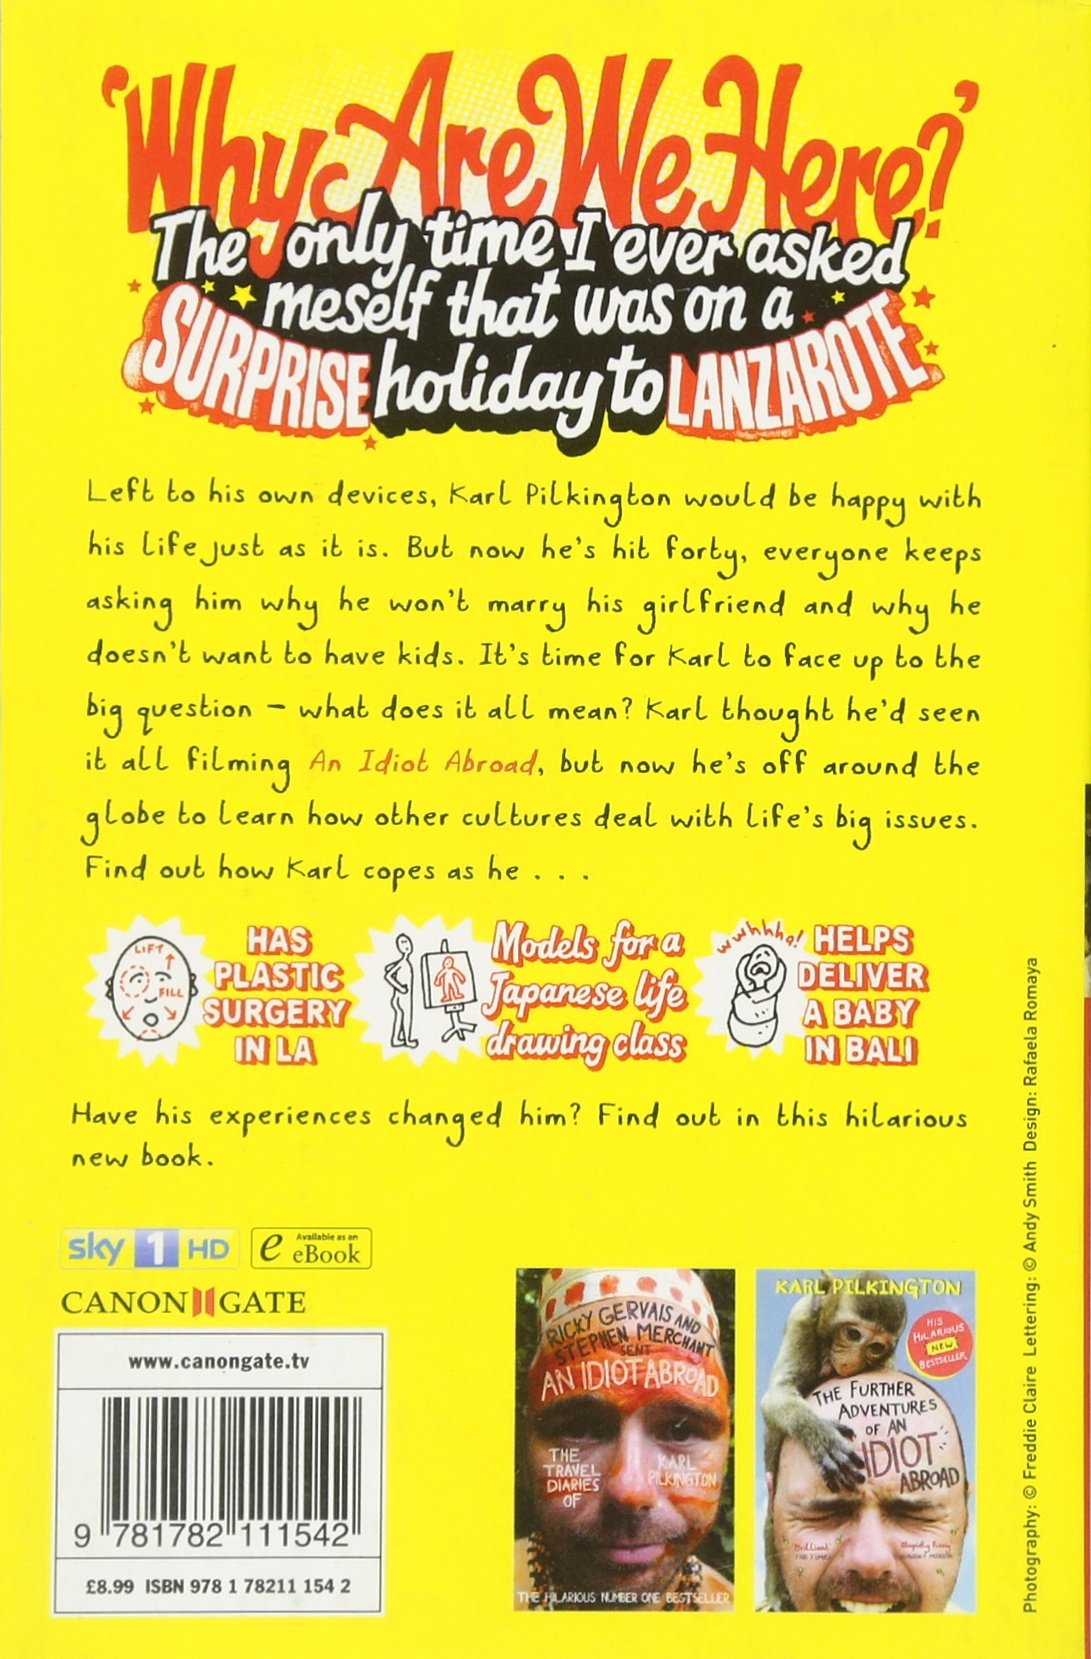 'Why Are We Here?'
The only time I ever asked
meself that was on a
SURPRISE holiday to LANZAROTE
Left to his own devices, Karl Pilkington would be happy with
his life just as it is. But now he's hit forty, everyone keeps
asking him why he won't marry his girlfriend and why he
doesn't want to have kids. It's time for Karl to face up to the
big question – what does it all mean? Karl thought he'd seen
it all filming An Idiot Abroad, but now he's off around the
globe to learn how other cultures deal with life's big issues.
Find out how Karl copes as he . . .
LIFT
FILL
HAS
PLASTIC
SURGERY
IN LA
Models for a
Japanese life
drawing class
wwhhha!
HELPS
DELIVER
A BABY
IN BALI
Have his experiences changed him? Find out in this hilarious
new book.
sky 1 HD
e Available as an
eBook
CANONGATE
www.canongate.tv
9 781782 111542
£8.99 ISBN 978 1 78211 154 2
RICKY GERVAIS AND
STEPHEN MERCHANT
SENT
AN IDIOT ABROAD
THE
TRAVEL
DIARIES
OF
KARL
PILKINGTON
THE HILARIOUS NUMBER ONE BESTSELLER
KARL PILKINGTON
HIS
HILARIOUS
NEW
BESTSELLER
THE FURTHER
ADVENTURES
OF AN
IDIOT
ABROAD
'Brilliant'
THE TIMES
Photography: © Freddie Claire Lettering: © Andy Smith Design: Rafaela Romaya